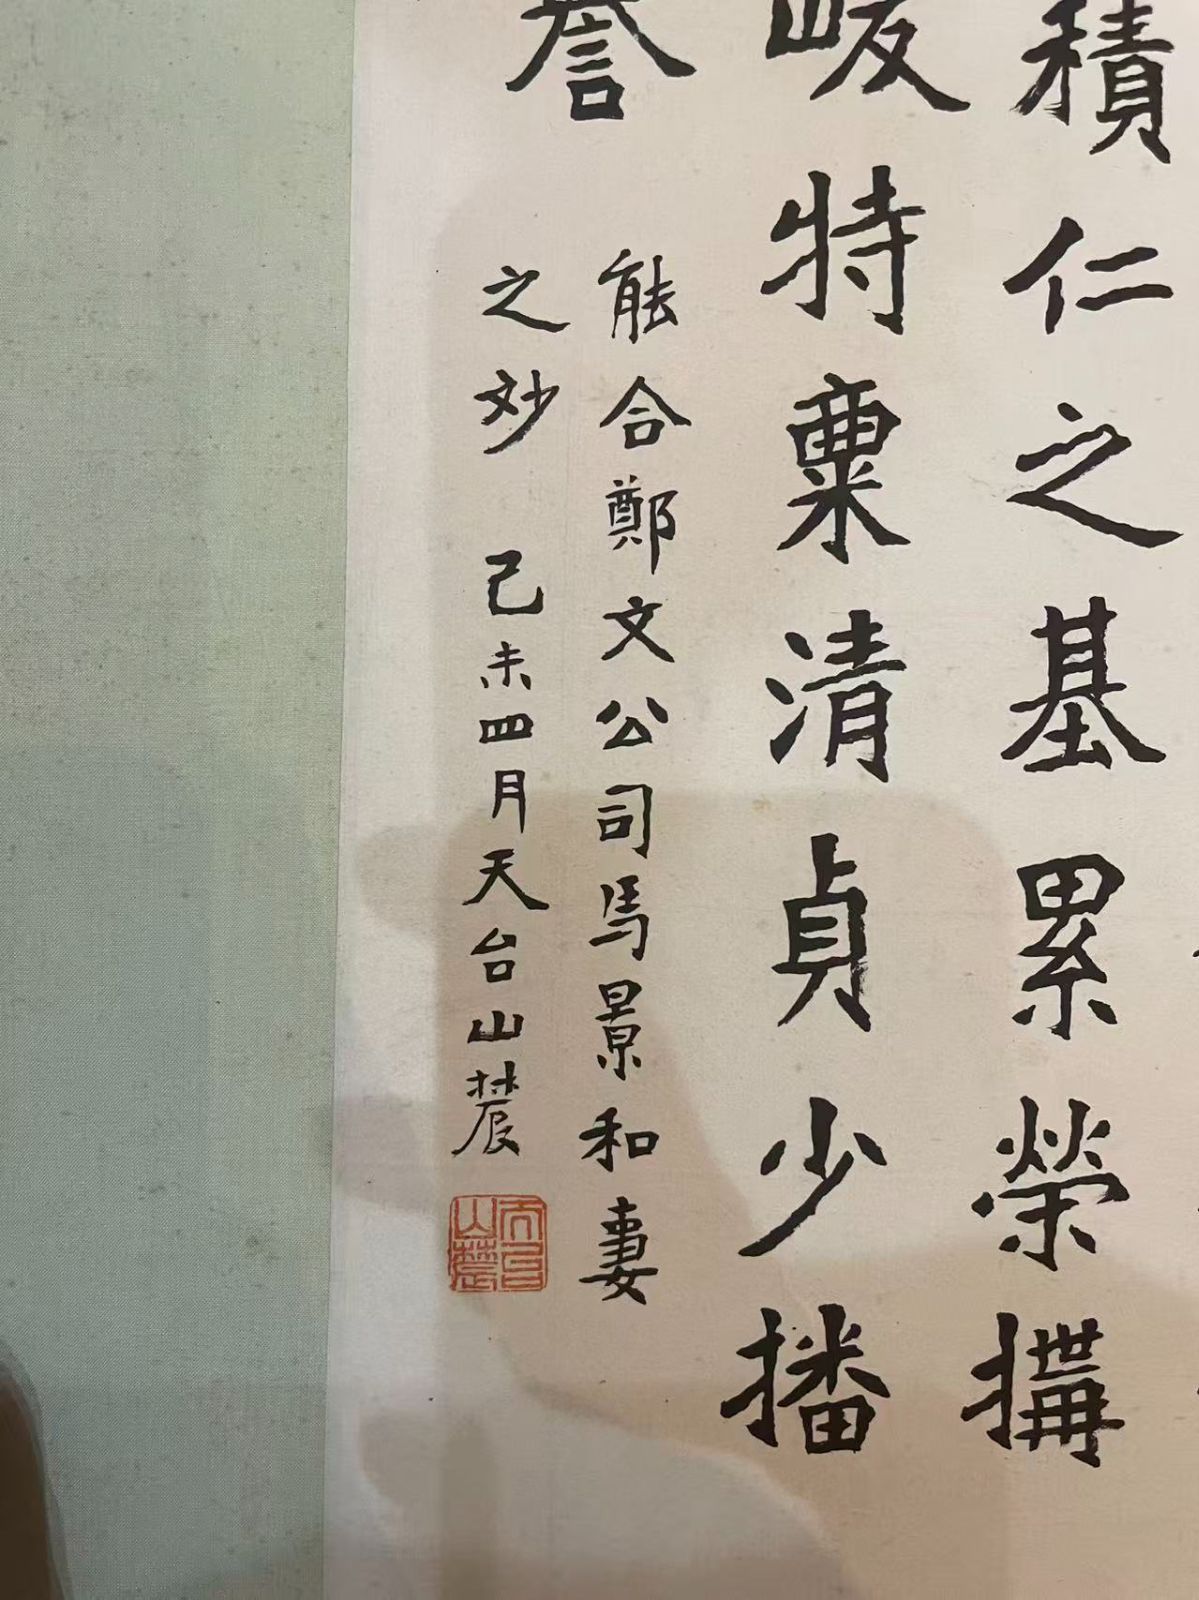 積仁之基累榮搆
峻特粟清貞少播
譽
能合鄭文公司馬景和妻
之妙 己未四月天台山農
天台山農